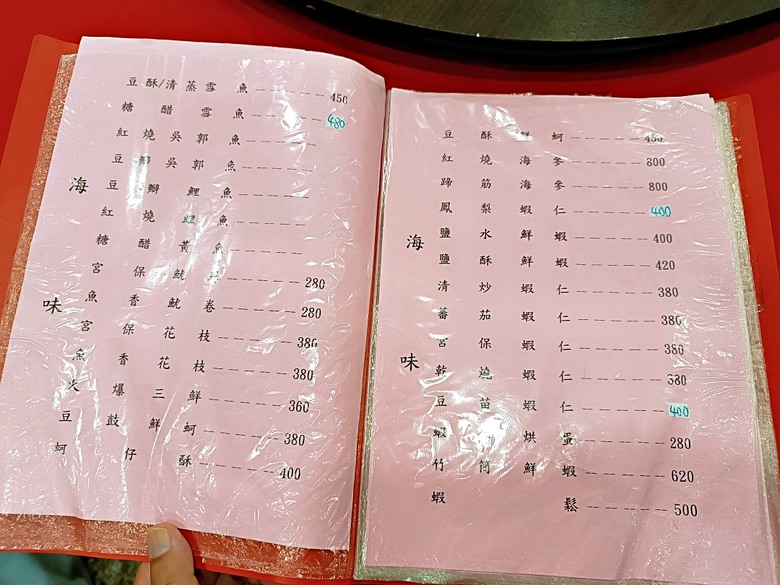 海味
豆酥/清蒸雪魚 450
糖醋雪魚 480
紅燒吳郭魚
豆瓣吳郭魚
豆瓣鯉魚
紅燒鯉魚
糖醋黃魚
宮保魷 280
魚香魷卷 280
宮保花枝 380
魚香花枝 380
火爆三鮮 360
豆鼓鮮蚵 380
蚵仔酥 400
海味
豆酥鮮蚵 450
紅燒海參 800
蹄筋海參 800
鳳梨蝦仁 400
鹽水鮮蝦 400
鹽酥鮮蝦 420
清炒蝦仁 380
蕃茄蝦仁 380
宮保蝦仁 380
乾燒蝦仁 380
豆苗蝦仁 400
蝦烘蛋 280
竹筒鮮蝦 620
蝦鬆 500